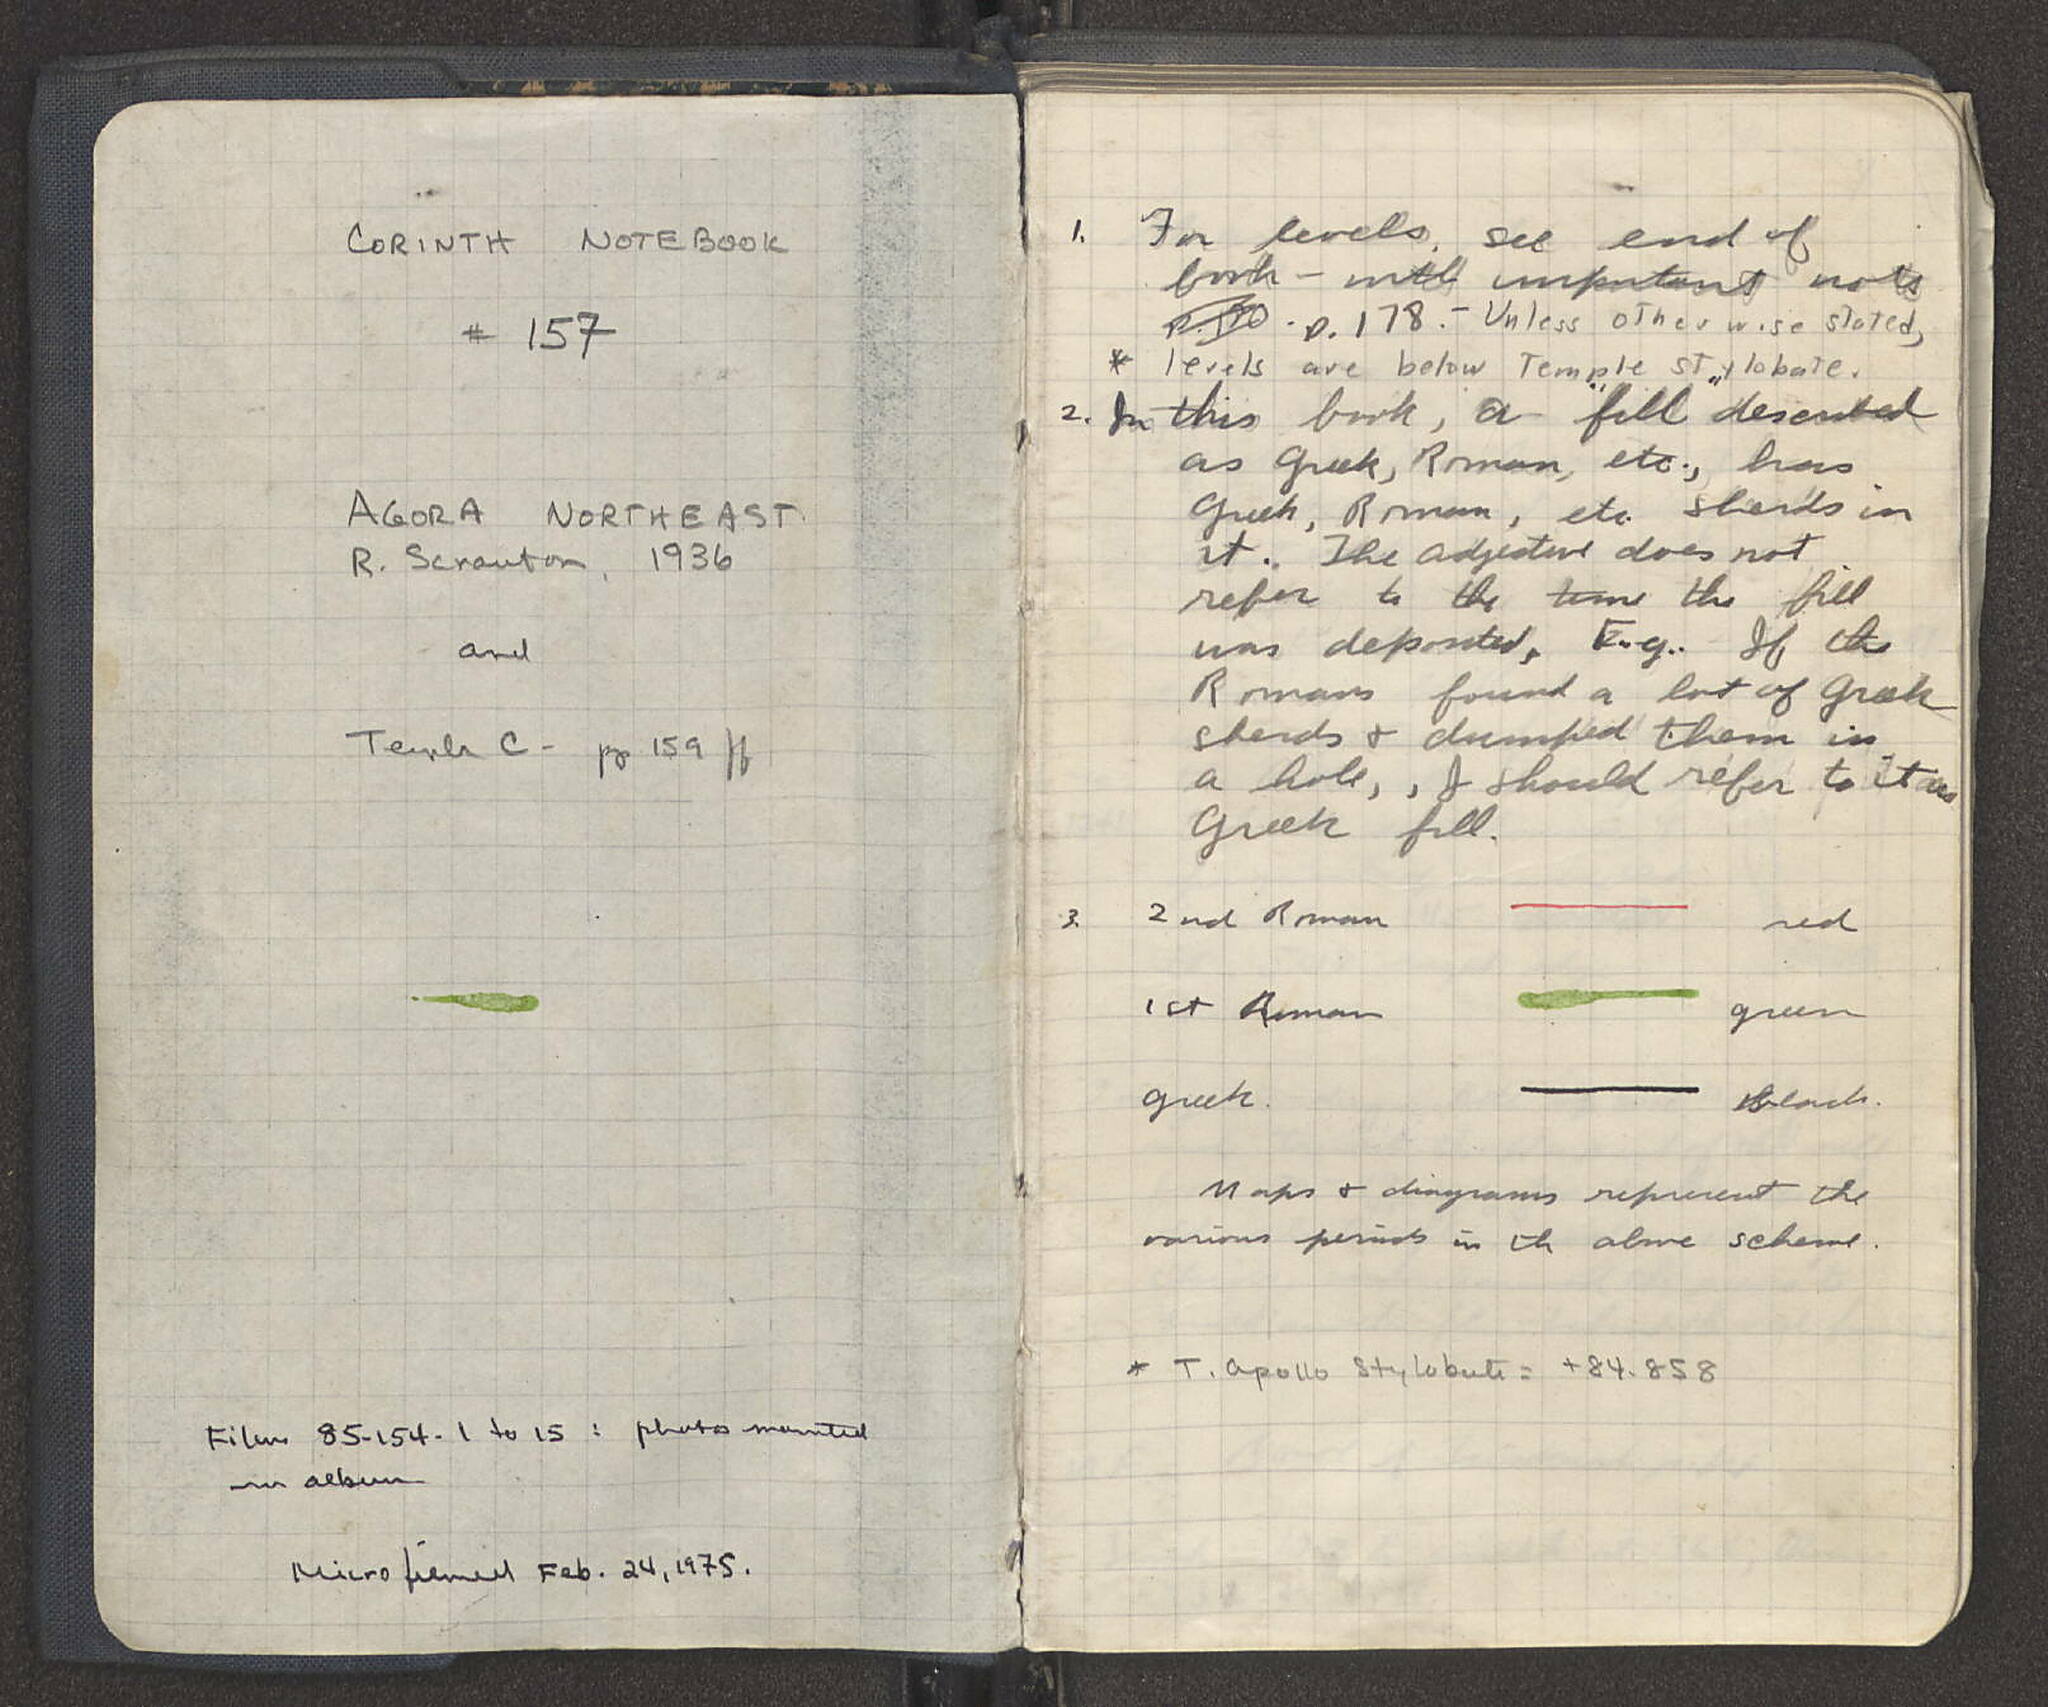 CORINTH NOTEBOOK
# 157
AGORA NORTHEAST
R. Scranton, 1936
and
Temple C - pp 159 ff
Films 85-154-1 to 15 : photos mounted
in album
Microfilmed Feb. 24, 1975.
1. For levels, see end of
book - with important note
p. 178. - Unless otherwise stated,
* levels are below Temple stylobate.
2. In this book, a "fill" described
as Greek, Roman, etc., has
Greek, Roman, etc. sherds in
it. The adjective does not
refer to the time the fill
was deposited. E.g. If the
Romans found a lot of Greek
sherds & dumped them in
a hole, I should refer to it as
Greek fill.
3. 2nd Roman red
1st Roman green
Greek. black.
Maps & diagrams represent the
various periods in th above scheme.
* T. Apollo Stylobate = +84.858